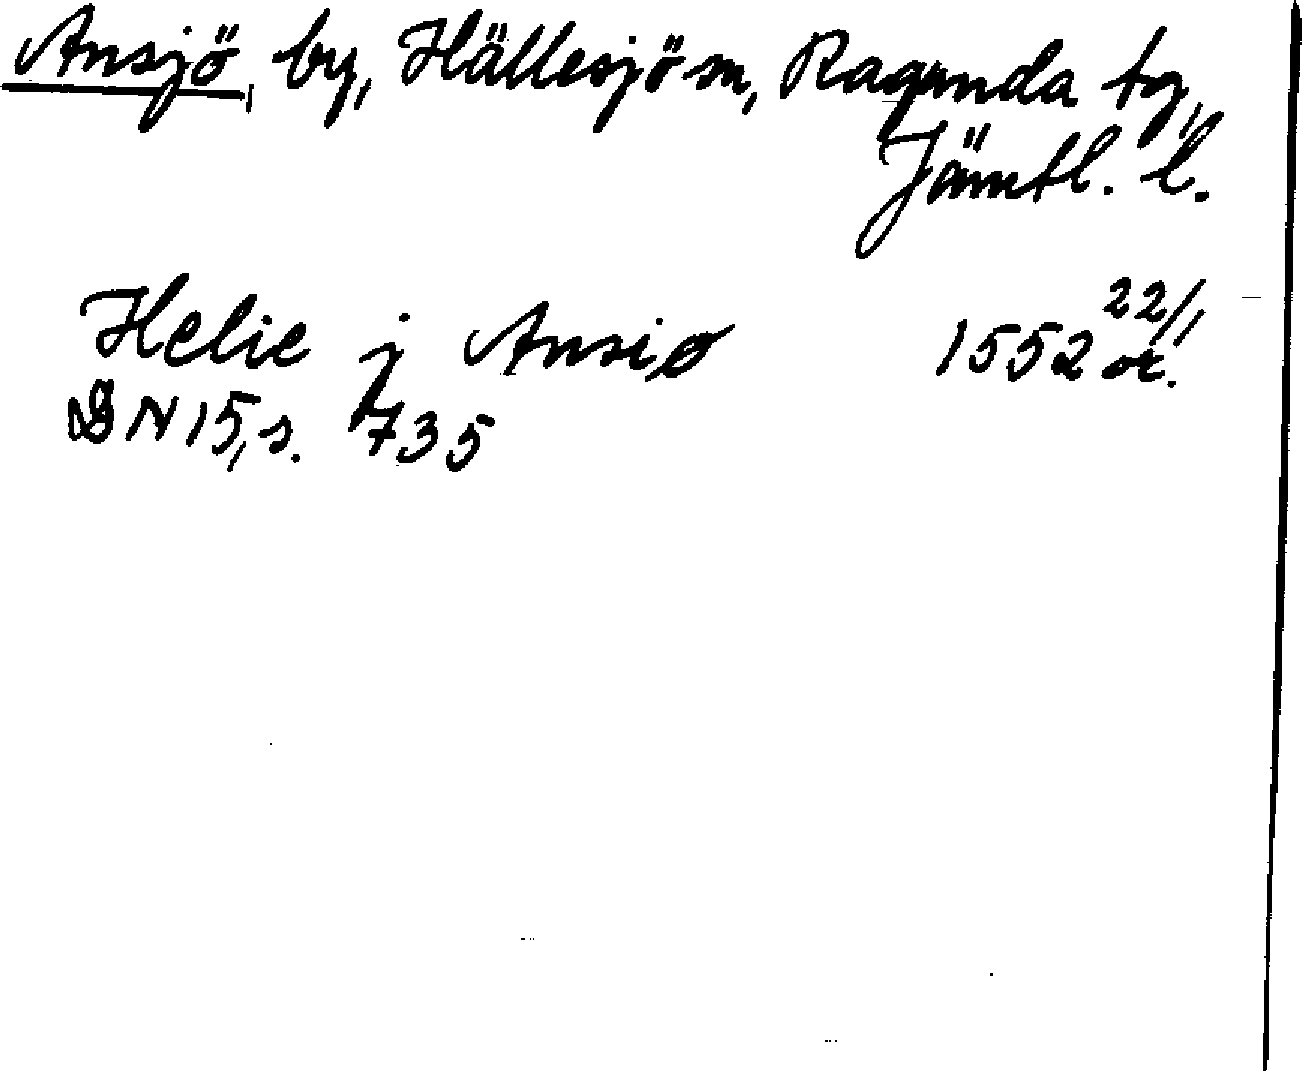 Ansjö by, Hällesjö sn, Ragunda tg,
Jämtl. l.
Helie j Ansiø 1552 22/1 or.
DN 15, s. 735